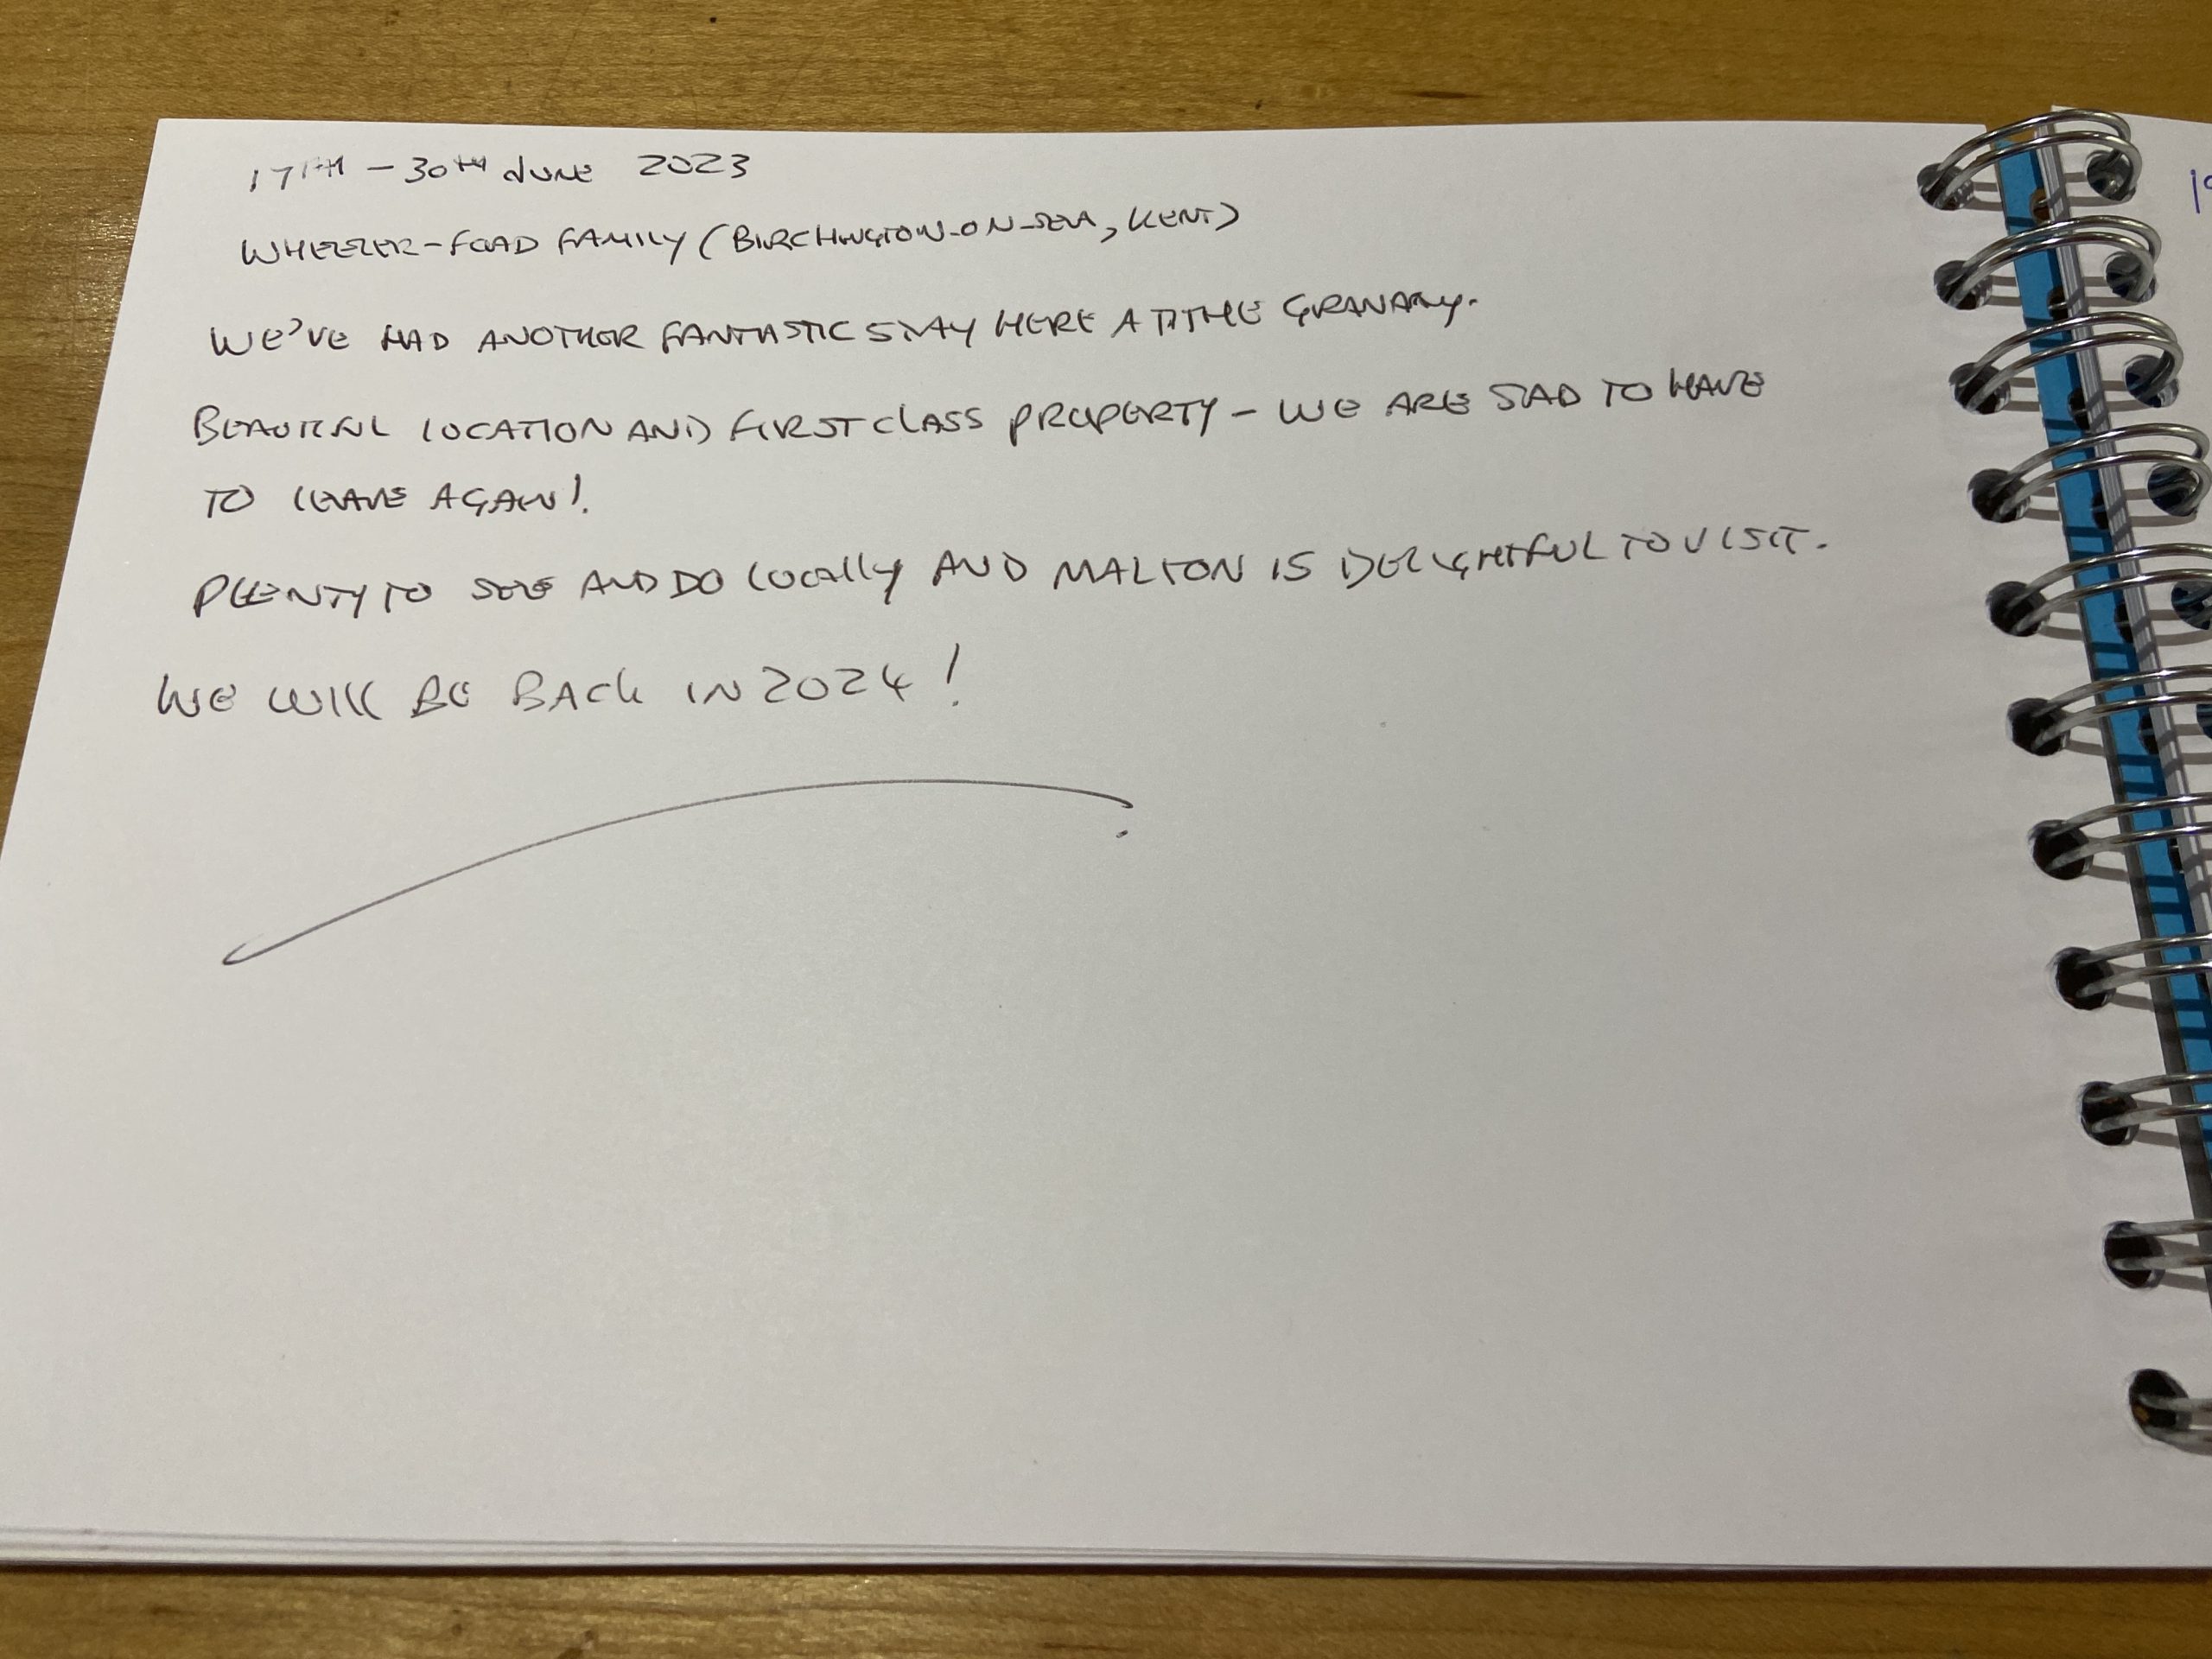 17TH - 30TH JUNE 2023
WHEELER-FOAD FAMILY (BIRCHINGTON-ON-SEA, KENT)
WE'VE HAD ANOTHER FANTASTIC STAY HERE AT THE GRANARY.
BEAUTIFUL LOCATION AND FIRST CLASS PROPERTY - WE ARE SAD TO HAVE
TO LEAVE AGAIN!
PLENTY TO SEE AND DO LOCALLY AND MALTON IS DELIGHTFUL TO VISIT.
WE WILL BE BACK IN 2024!